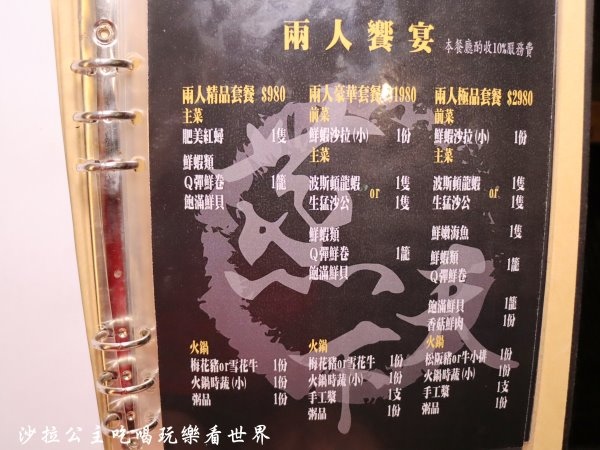 兩人饗宴 本餐廳酌收10%服務費
兩人精品套餐 $980
主菜
肥美紅蟳 1隻
鮮蝦類
Q彈鮮卷 1籠
飽滿鮮貝
火鍋
梅花豬or雪花牛 1份
火鍋時蔬(小) 1份
粥品 1份
兩人豪華套餐 $1980
前菜
鮮蝦沙拉(小) 1份
主菜
波斯頓龍蝦 1隻
or
生猛沙公 1隻
鮮蝦類
Q彈鮮卷 1籠
飽滿鮮貝
火鍋
梅花豬or雪花牛 1份
火鍋時蔬(小) 1份
手工漿 1支
粥品 1份
兩人極品套餐 $2980
前菜
鮮蝦沙拉(小) 1份
主菜
波斯頓龍蝦 1隻
or
生猛沙公 1隻
鮮嫩海魚 1隻
鮮蝦類
Q彈鮮卷 1籠
飽滿鮮貝 1籠
香菇鮮肉 1份
火鍋
松阪豬or牛小排 1份
火鍋時蔬(小) 1份
手工漿 1支
粥品 1份
沙拉公主吃喝玩樂看世界